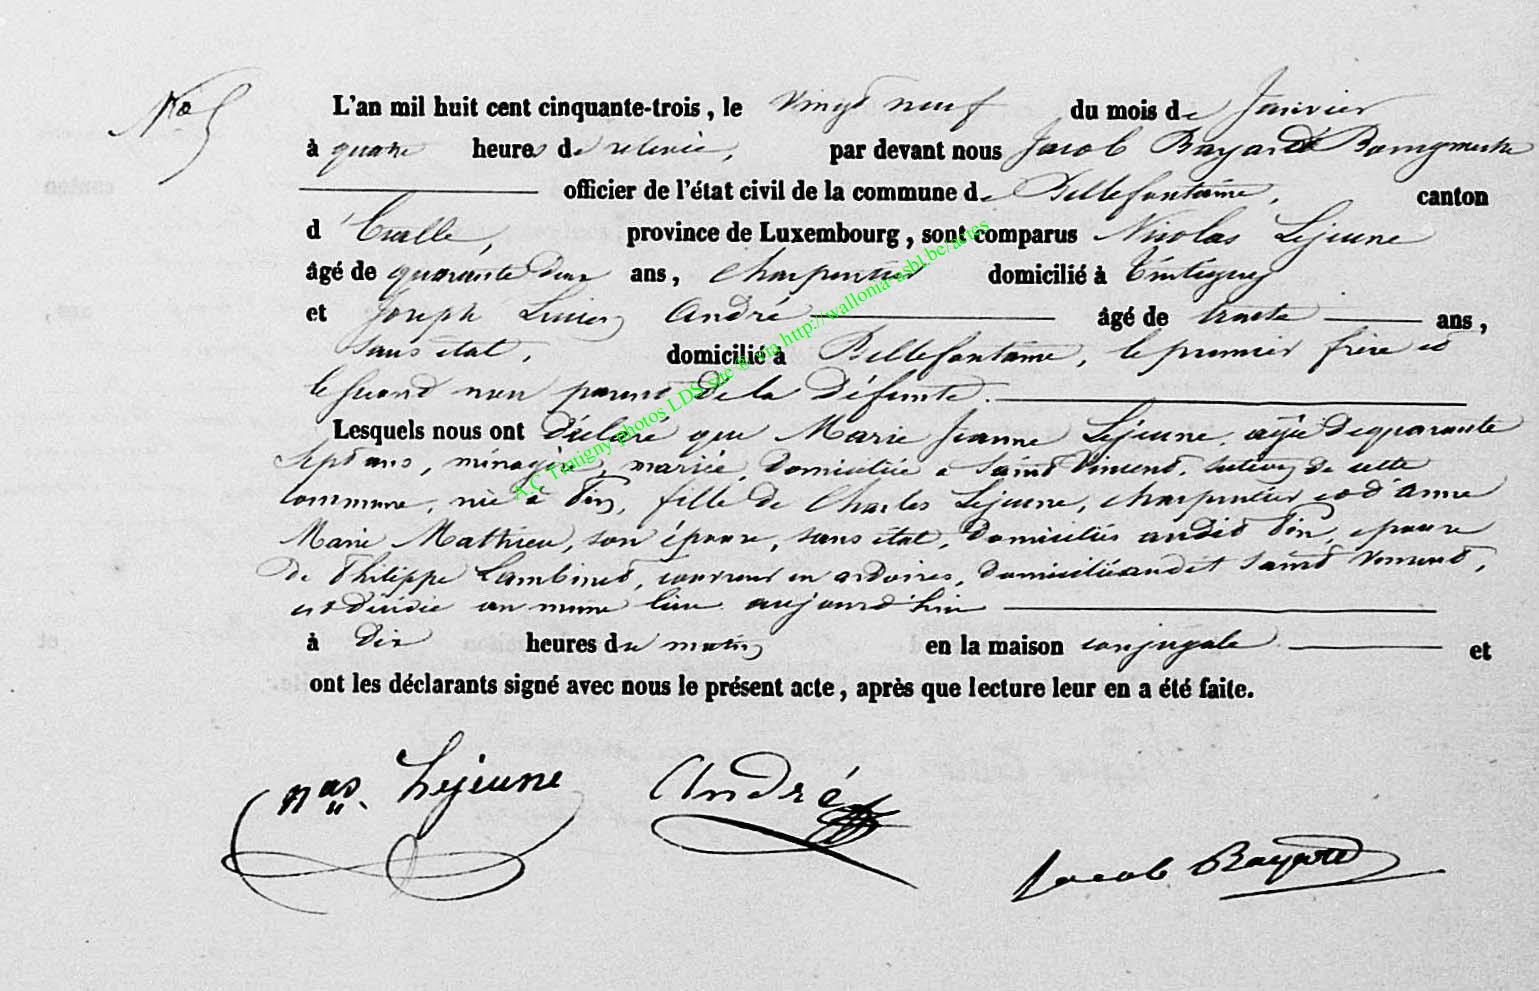 No 5
L'an mil huit cent cinquante-trois, le vingt neuf du mois de Janvier
à quatre heures de relevée, par devant nous Jacob Bayard Bourgmestre
officier de l'état civil de la commune de Bellefontaine, canton
d'Etalle, province de Luxembourg, sont comparus Nicolas Lejeune
âgé de quarante deux ans, charpentier domicilié à Tintigny
et Joseph André âgé de trente ans,
sans état, domicilié à Bellefontaine, le premier frère et
le second non parent de la Défunte.
Lesquels nous ont déclaré que Marie Jeanne Lejeune, agée de quarante
sept ans, ménagère, mariée, domiciliée à Saint Vincent, de cette
commune, née à Pin, fille de Charles Lejeune, charpentier et d'Anne
Marie Mathieu, son épouse, sans état, domiciliés audit Pin, épouse
de Philippe Lambinet, couvreur en ardoises, domicilié audit Saint Vincent,
est décédée au même lieu aujourd'hui
à dix heures du matin en la maison conjugale et
ont les déclarants signé avec nous le présent acte, après que lecture leur en a été faite.
nas Lejeune André
Jacob Bayard
A.C Tintigny photos LDS, site @ via http://wallonia-asbl.be/actes